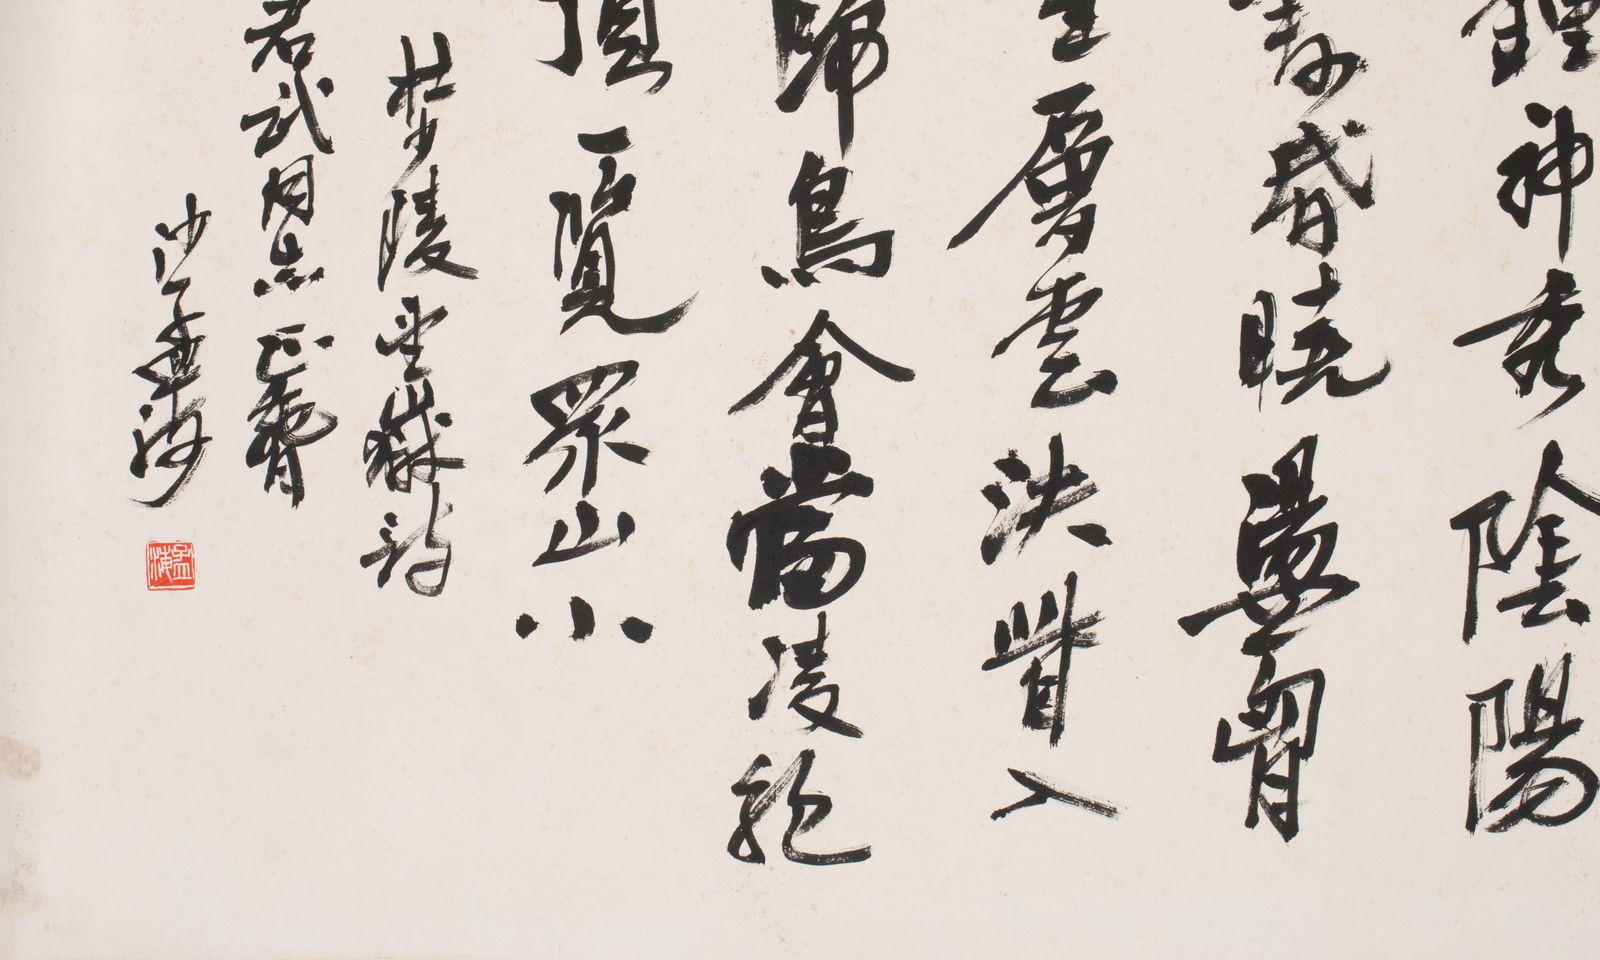 鍾神秀陰陽
割昏曉盪胷
生層雲決眥入
歸鳥會當凌絕
頂一覽眾山小
杜少陵望嶽詩
君武同志正
沙孟海
孟海